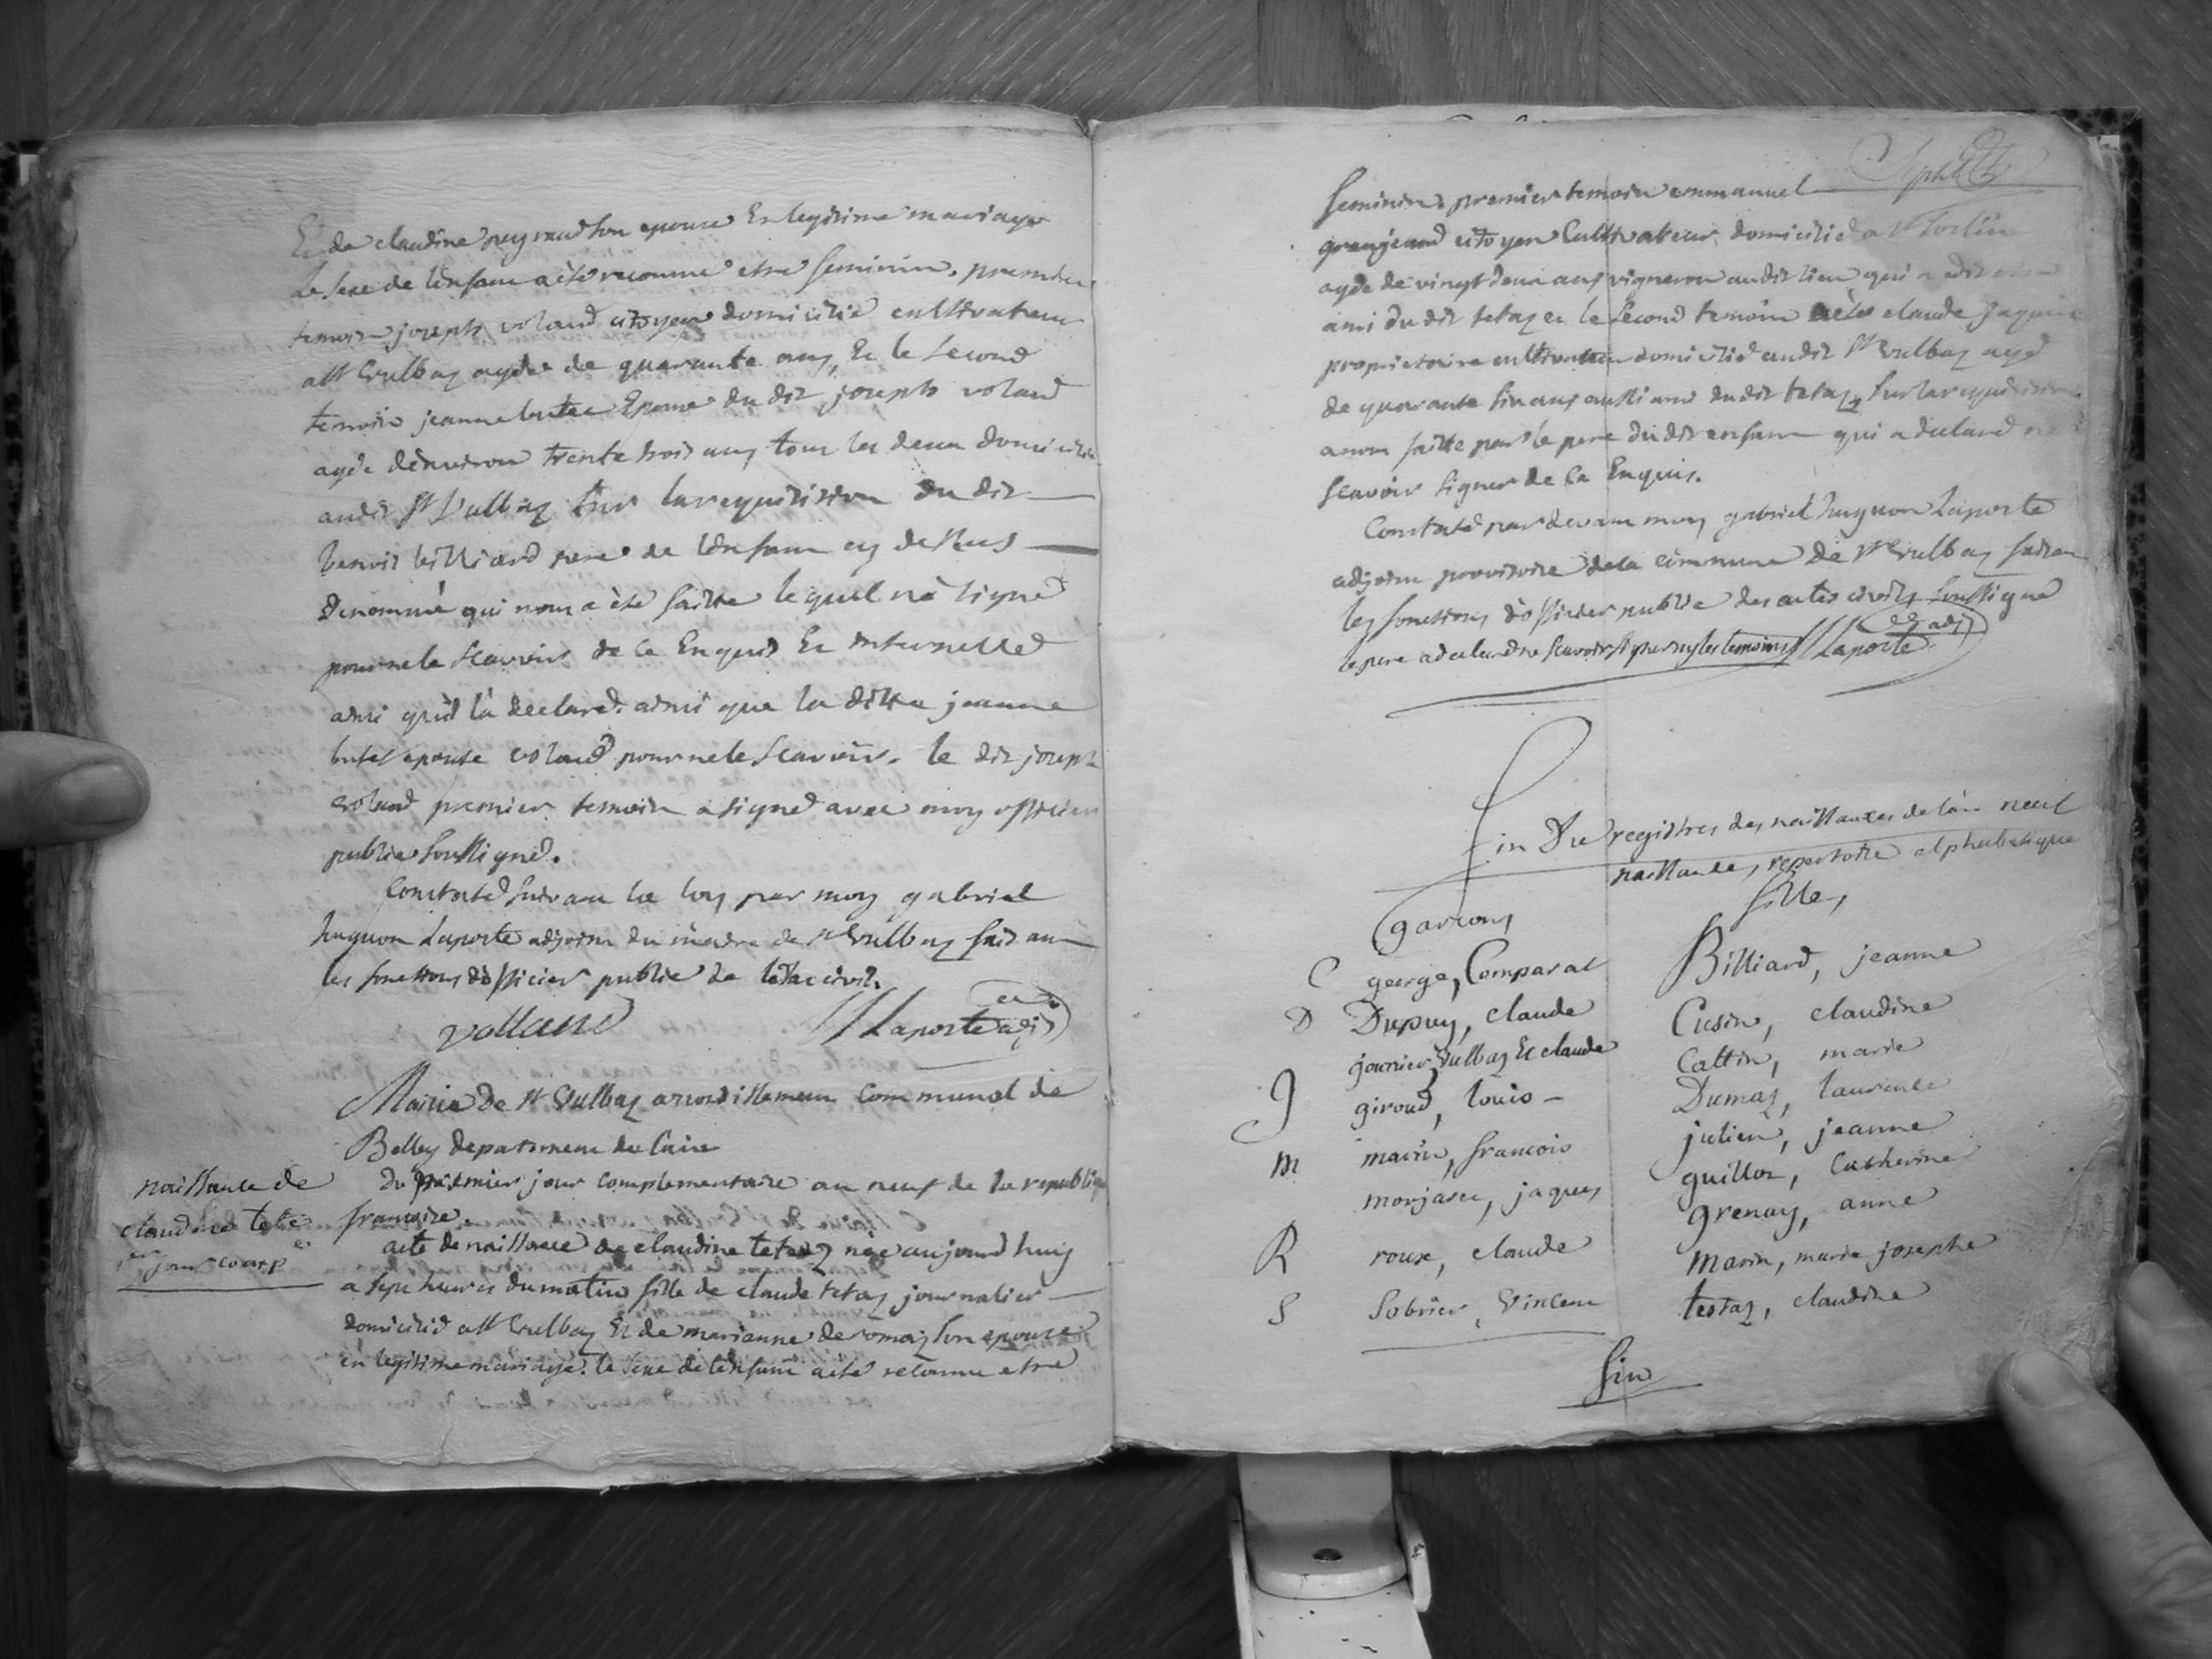 Et de claudine reynaud son epouse En legitime mariage
le sexe de lenfant a été reconnue etre feminin. premier
temoin joseph voland citoyen domicilié cultivateur
a St Vulbaz agée de quarante ans, Et le second
temoin jeanne butet Epouse du dit joseph voland
agée denviron trente trois ans tous les deux domicilié
audit St Vulbaz sur la requisition du dit
benoit billiard pere de lenfant cy dessus
denommé qui nous a èté faitte lequel na signé
pour ne le scavoir de ce Enquis Et interpellé
ainsi qu'il là declaré. ainsi que la ditte jeanne
butet epouse voland pour ne le scavoir. le dit joseph
voland premier temoin a signé avec moy officier
public soussigné.
Constaté suivant la loy par moy gabriel
huguon Laporte adjoint du maire de St Vulbaz faisant
les fonctions dòfficier public de létat civil.
volland Laporte adj
Mairie de St Vulbaz arrondissement Communal de
Belley departement de lain
du premier jour complementaire an neuf de la republique
francaise.
naissance de
claudine teté
1er jour comp
acte de naissance de claudine tetaz née aujourd huy
a sept heures du matin fille de claude tetaz journalier
domicilié a St Vulbaz Et de marianne deromaz son epouse
en legitime mariage. le sexe de lenfant a eté reconnu etre
feminin premier temoin emmanuel
grangeand citoyen Cultivateur domicilié a St Sorlin
agée de vingt deux ans vigneron audit lieu qui a dit
ami du dit tetaz et le second temoin a èté claude jaquin
proprietaire cultivateur domicilié audit St Vulbaz agé
de quarante six ans aussi ami dudit tetaz, sur la requisition
a nous faitte par le pere du dit enfant qui a declaré ne
scavoir signer de ce Enquis.
Constaté par devant moy gabriel huguon Laporte
adjoint provisoire de la commune de St Vulbaz faisant
les fonctions dòfficier public des actes civils soussigné
le pere a declaré ne scavoir signer ny les temoins Laporte adj
Fin Du registres des naissances de làn neuf
naissances, repertoire alphabetique
garcons filles
C george, Comparat Billiard, jeanne
D Dupuy, claude Cusin, claudine
journier Vulbaz Et claude Cattin, marie
J giroud, louis Dumas, laurence
julien, jeanne
m marin, francois guillot, Catherine
monjaret, jaques grenay, anne
R roux, claude marin, marie josephe
S Sobrier, Vincent testaz, claudine
fin